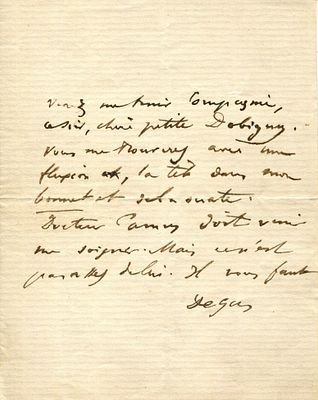 Venez me tenir Compagnie,
ce soir, chère petite Dobigny.
Vous me trouverez avec une
fluxion et, la tête dans mon
bonnet et de la ouate.
Docteur Camus doit venir
me soigner. Mais ce n'est
pas assez de lui. Il vous faut
Degas